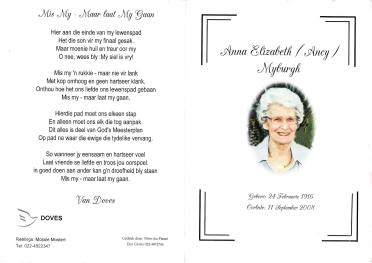 Mis My - Maar laat My Gaan
Hier aan die einde van my lewenspad
Het die son vir my finaal gesak.
Maar moenie huil en treur oor my
O nee, wees bly :My siel is vry!
Mis my 'n rukkie - maar nie vir lank
Met kop omhoog en geen hartseer klank.
Onthou hoe het ons liefde ons lewenspad gebaan
Mis my - maar laat my gaan.
Hierdie pad moet ons elkeen stap
En alleen moet elk die tog aanpak.
Dit alles is deel van God's Meesterplan
Op pad na waar die ewige die tydelike vervang.
So wanneer jy eensaam en hartseer voel
Laat vriende se liefde en troos jou oorspoel.
in goed doen aan ander kan g'n droefheid bly staan
Mis my - maar laat my gaan.
Van Doves
DOVES
Reelings: Mossie Mostert
Tel: 022-4822347
Anna Elizabeth (Ancy)
Myburgh
Gebore: 24 Februarie 1916
Oorlede: 11 September 2008